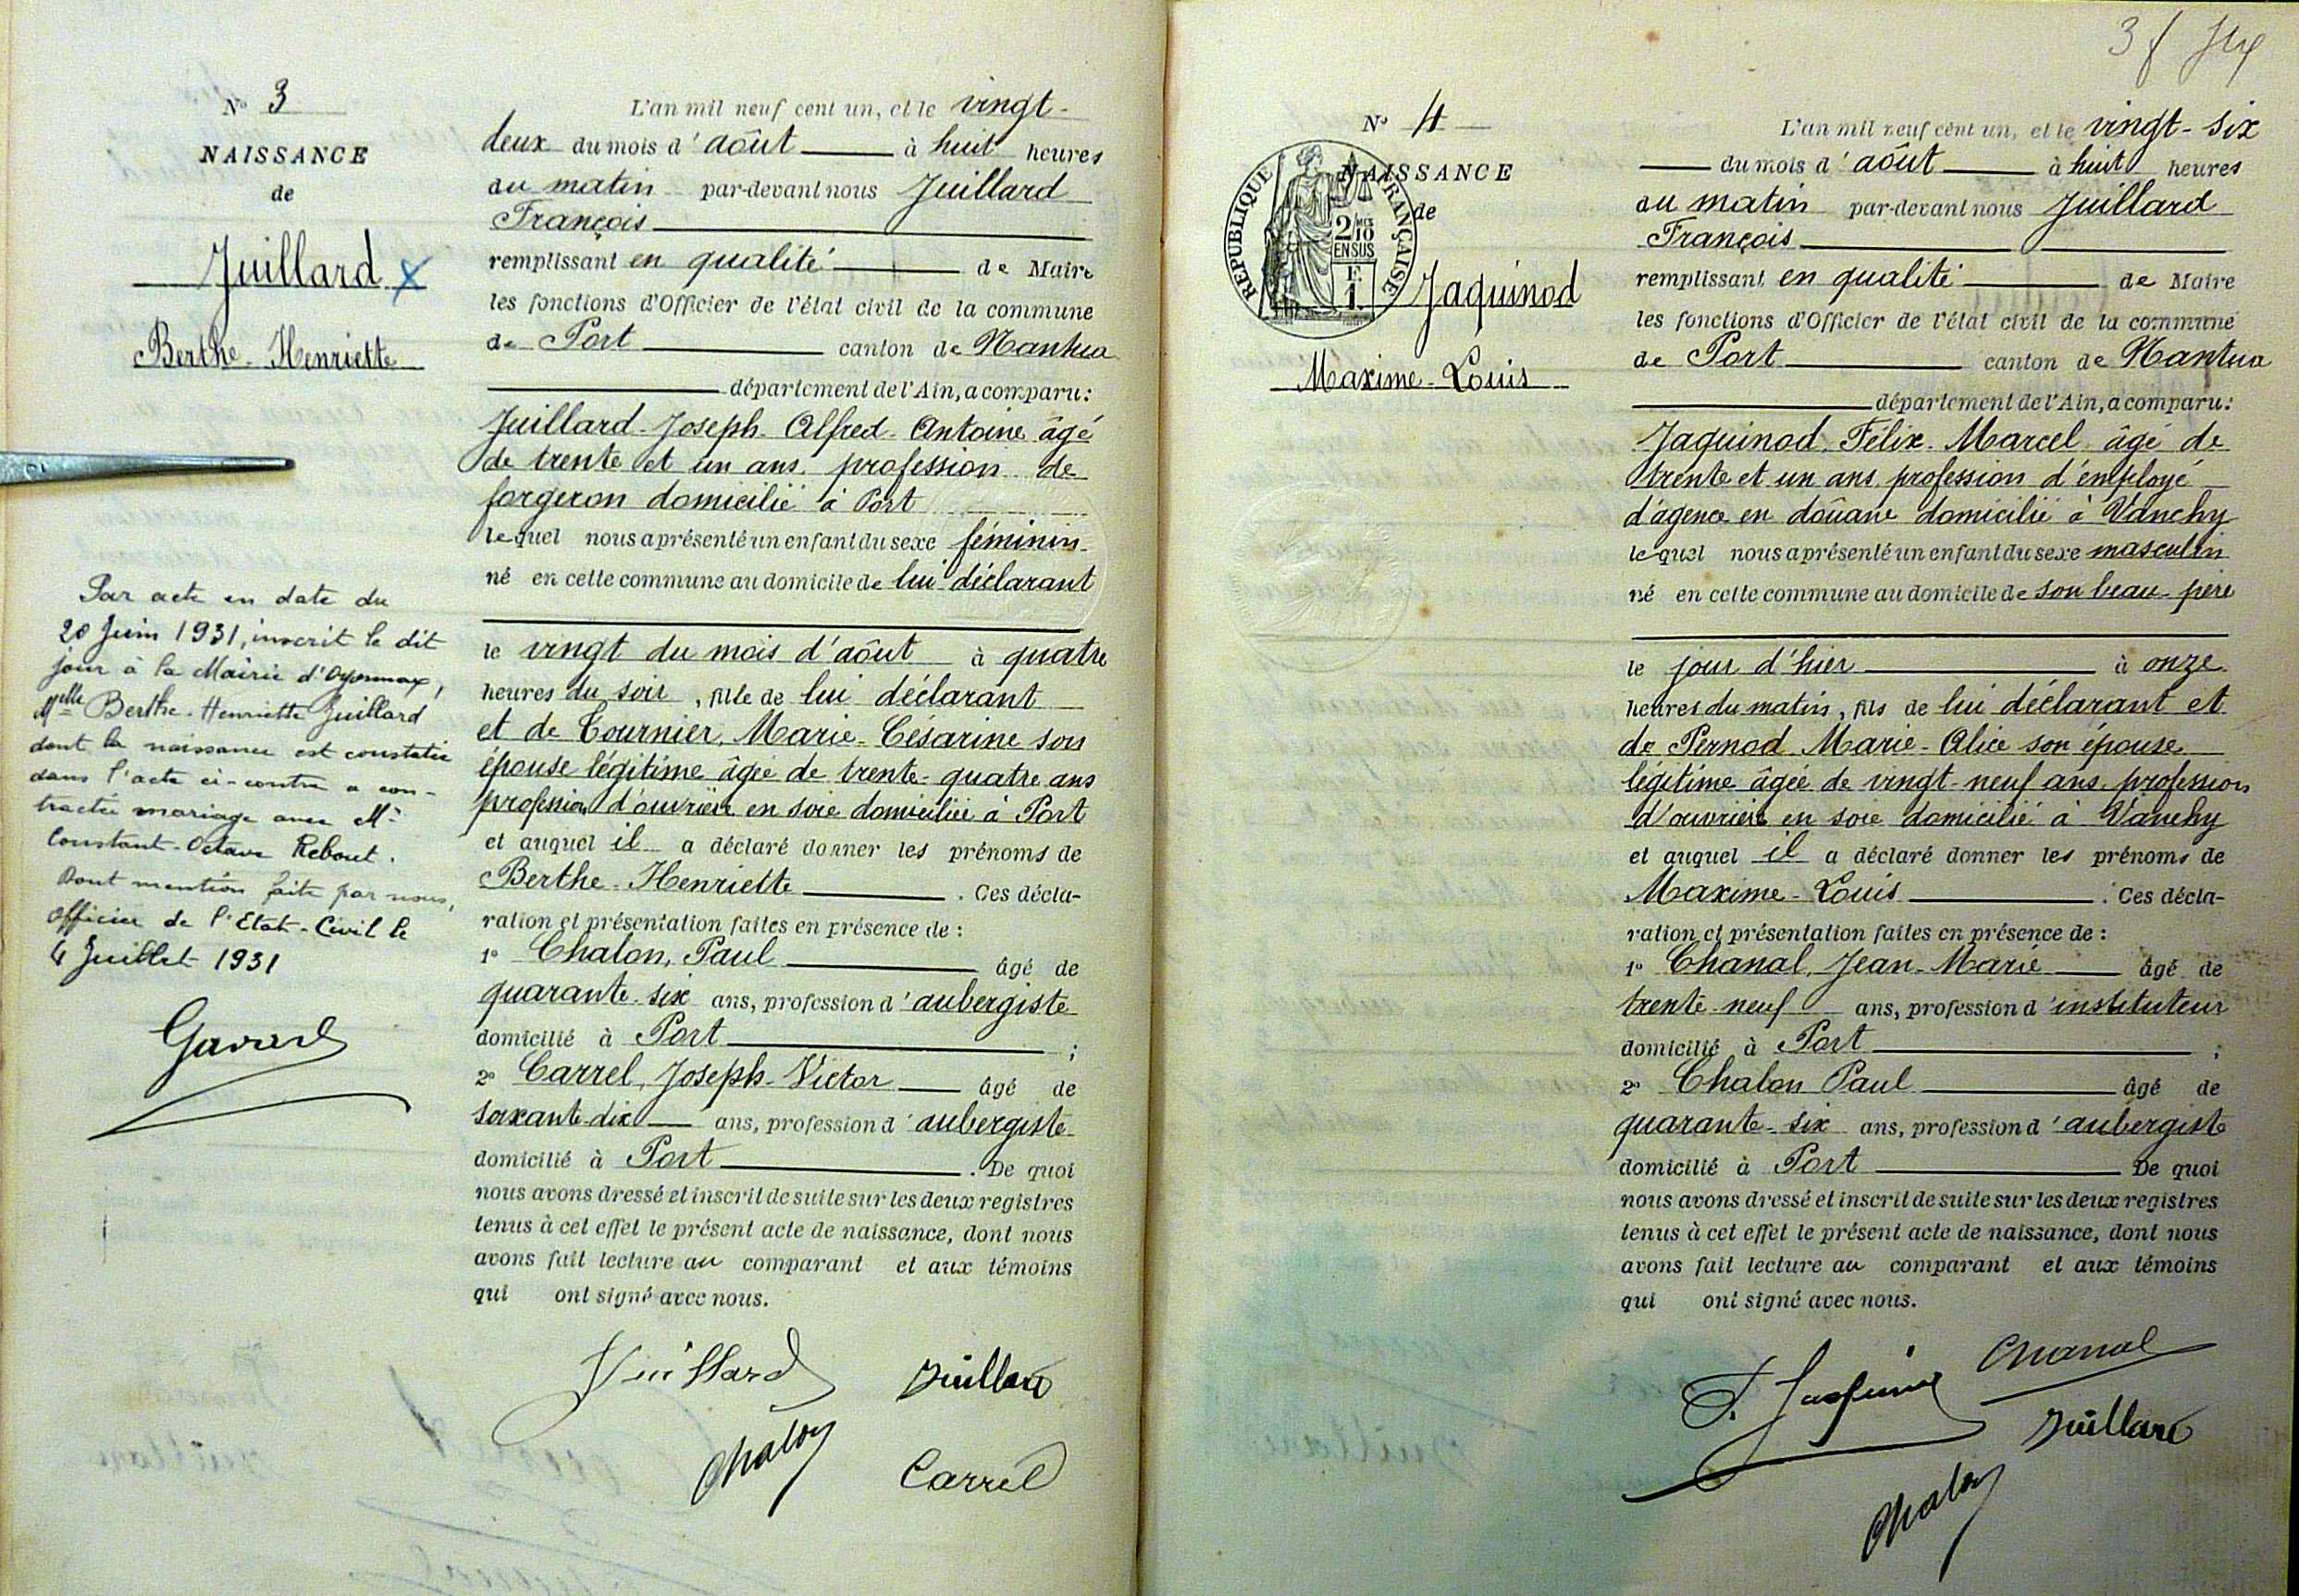 N° 3
NAISSANCE
de
Juillard
Berthe-Henriette
Par acte en date du
20 Juin 1931, inscrit le dit
jour à la Mairie d'Oyonnax,
Melle Berthe-Henriette Juillard
dont la naissance est constatée
dans l'acte ci-contre a con-
tracté mariage avec Mr
Constant-Octave Rebout.
Dont mention faite par nous,
Officier de l'Etat-Civil le
4 Juillet 1931
L'an mil neuf cent un, et le vingt-
deux du mois d'août à huit heures
du matin par-devant nous Juillard
François
remplissant en qualité de Maire
les fonctions d'Officier de l'état civil de la commune
de Port canton de Nantua
département de l'Ain, a comparu:
Juillard Joseph Alfred Antoine âgé
de trente et un ans profession de
forgeron domicilié à Port
lequel nous a présenté un enfant du sexe féminin
né en cette commune au domicile de lui déclarant
le vingt du mois d'août à quatre
heures du soir, fille de lui déclarant
et de Tournier, Marie-Césarine son
épouse légitime âgée de trente-quatre ans
profession d'ouvrière en soie domiciliée à Port
et auquel il a déclaré donner les prénoms de
Berthe-Henriette. Ces décla-
ration et présentation faites en présence de:
1° Chalon, Paul âgé de
quarante-six ans, profession d'aubergiste
domicilié à Port;
2° Carrel, Joseph-Victor âgé de
soixante-dix ans, profession d'aubergiste
domicilié à Port. De quoi
nous avons dressé et inscrit de suite sur les deux registres
tenus à cet effet le présent acte de naissance, dont nous
avons fait lecture au comparant et aux témoins
qui ont signé avec nous.
Juillard Juillard
Chalon Carrel
N° 4
NAISSANCE
de
RÉPUBLIQUE FRANÇAISE
2/10
EN SUS
F.
1
Jaquinod
Maxime-Louis
3 f
L'an mil neuf cent un, et le vingt-six
du mois d'août à huit heures
du matin par-devant nous Juillard
François
remplissant en qualité de Maire
les fonctions d'Officier de l'état civil de la commune
de Port canton de Nantua
département de l'Ain, a comparu:
Jaquinod, Félix-Marcel, âgé de
trente et un ans, profession d'employé
d'agence en douane domicilié à Vanchy
lequel nous a présenté un enfant du sexe masculin
né en cette commune au domicile de son beau-père
le jour d'hier à onze
heures du matin, fils de lui déclarant et
de Pernod Marie-Alice son épouse
légitime âgée de vingt-neuf ans, profession
d'ouvrière en soie domicilié à Vanchy
et auquel il a déclaré donner les prénoms de
Maxime-Louis. Ces décla-
ration et présentation faites en présence de:
1° Chanal, Jean-Marie âgé de
trente-neuf ans, profession d'instituteur
domicilié à Port;
2° Chalon Paul âgé de
quarante-six ans, profession d'aubergiste
domicilié à Port De quoi
nous avons dressé et inscrit de suite sur les deux registres
tenus à cet effet le présent acte de naissance, dont nous
avons fait lecture au comparant et aux témoins
qui ont signé avec nous.
Chanal
F. Jaquinod
Juillard
Chalon